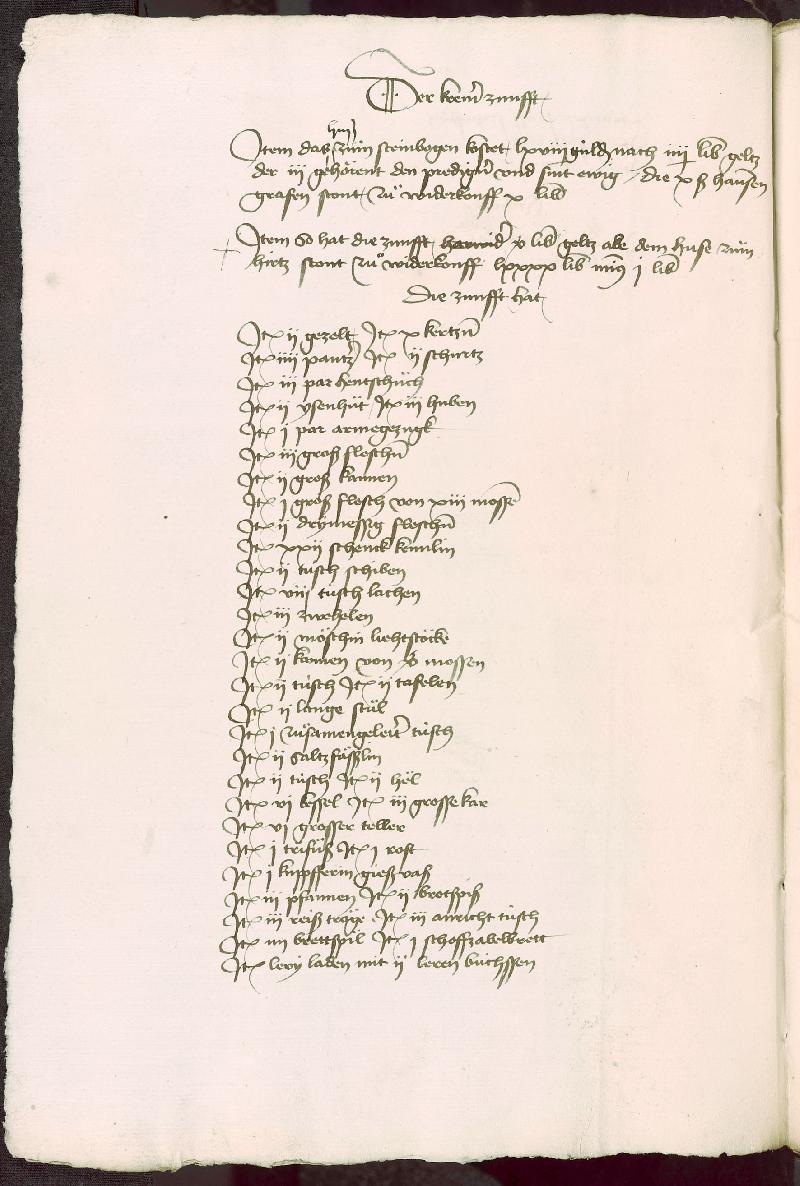 Der krem̄ zunfft
huß
Item das zum steinbogen kostet lxviiii guldȷ nach iiii lib geltz
der iii gehörent den predign̄ vnd sint ewig / die x ß hansen
grafen stont zů widerkouff x lib
Item so hat die zunfft lib geltz abe dem huse zum
hirtz stont zů widerkouff lxxxx lib minꝯ j lib
die zunfft hat
Itꝫ ii gezelt Itꝫ x kertzn̄
Itꝫ iiii pantzˀ Itꝫ ii schurtz
Itꝫ iii par hentschůch
Itꝫ ii ysenhůt Itꝫ iii huben
Itꝫ j par armegezugk
Itꝫ iii groß fleschn̄
Itꝫ ii groß kannen
Itꝫ j groß flesch von xiii mossē
Itꝫ ii drÿmessig fleschn̄
Itꝫ xxii schenck kennlin
Itꝫ ii tusch schiben
Itꝫ viii tusch lachen
Itꝫ iii zwehelen
Itꝫ ii möschin liehtstöcke
Itꝫ ii kannen von mossen
Itꝫ ii tusch Itꝫ ii tafelen
Itꝫ ii lange stůl
Itꝫ j zůsamengeleitˀ tusch
Itꝫ ii saltzfäßlin
Itꝫ ii tusch Itꝫ ii hël
Itꝫ vi kessel Itꝫ iii grosse kar
Itꝫ vi grosser teller
Itꝫ j trifůß Itꝫ j rost
Itꝫ j kupfferin gieß vaß
Itꝫ iii pfannen Itꝫ ii brotspiß
Itꝫ iii reiß tröge Itꝫ iii anricht tusch
Itꝫ iiii brettspil Itꝫ j schoffzabelbrett
Itꝫ laden mit ii leren buchssen